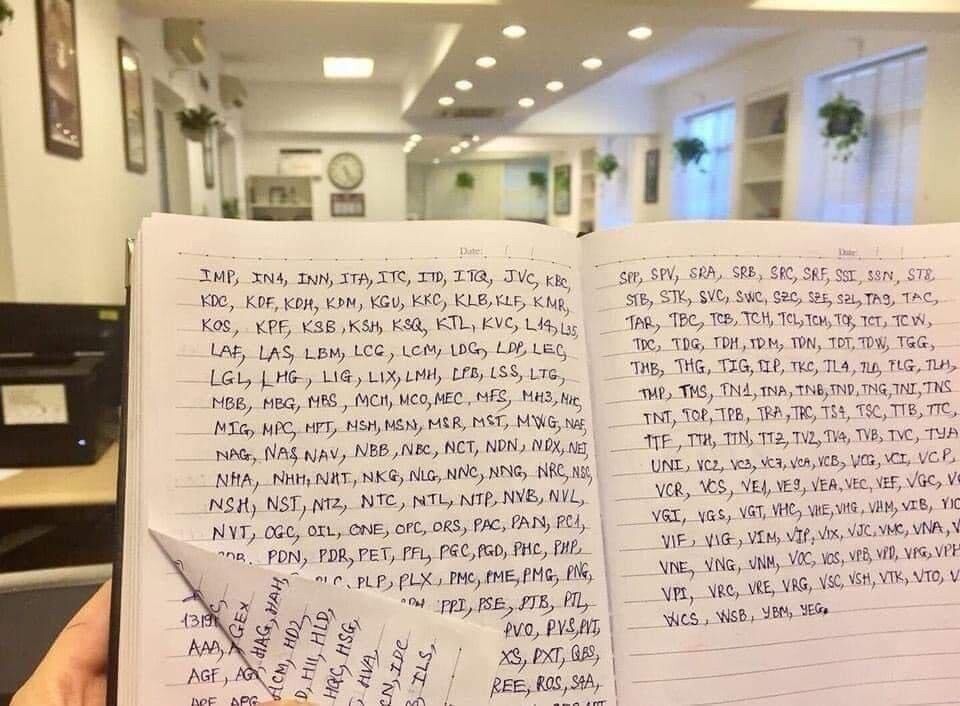 Date: / /
IMP, IN4, INN, ITA, ITC, ITD, ITQ, JVC, KBC,
KDC, KDF, KDH, KDM, KGU, KKC, KLB, KLF, KMR,
KOS, KPF, KSB, KSH, KSQ, KTL, KVC, L14, L35,
LAF, LAS, LBM, LCG, LCM, LDG, LDP, LEC,
LGL, LHG, LIG, LIX, LMH, LPB, LSS, LTG,
MBB, MBG, MBS, MCH, MCO, MEC, MFS, MH3, MHC,
MIG, MPC, MPT, MSH, MSN, MSR, MST, MWG, NAF,
NAG, NAS, NAV, NBB, NBC, NCT, NDN, NDX, NET,
NHA, NHH, NHT, NKG, NLG, NNC, NNG, NRC, NSC,
NSH, NST, NTZ, NTC, NTL, NTP, NVB, NVL,
NVT, OGC, OIL, ONE, OPC, ORS, PAC, PAN, PC1,
PDN, PDR, PET, PFL, PGC, PGD, PHC, PHP,
PLC, PLP, PLX, PMC, PME, PMG, PNG,
PPI, PSE, PTB, PTL,
PVO, PVS, PVI,
XS, PXT, QBS,
REE, ROS, S4A,
AAA,
AGF,
APF, APG
AGEX
HAG, HAH,
HCM, HDZ,
HII, HLD,
HQC, HSG,
HVA,
IDC
ILS,
Date: / /
SPP, SPV, SRA, SRB, SRC, SRF, SSI, SSN, ST8,
STB, STK, SVC, SWC, SZC, SZE, SZL, TA9, TAC,
TAR, TBC, TCB, TCH, TCL, TCM, TCR, TCT, TCW,
TDC, TDG, TDH, TDM, TDN, TDT, TDW, TGG,
THB, THG, TIG, TIP, TKC, TL4, TLD, FLG, TLH,
TMP, TMS, TN1, TNA, TNB, TND, TNG, TNI, TNS
TNT, TOP, TPB, TRA, TRC, TS4, TSC, TTB, TTC,
TTF, TTH, TTN, TTZ, TV2, TV4, TVB, TVC, TYA
UNI, VC2, VC3, VC7, VCA, VCB, VCG, VCI, VCP,
VCR, VCS, VE1, VE9, VEA, VEC, VEF, VGC,
VGI, VGS, VGT, VHC, VHE, VHG, VHM, VIB,
VIF, VIG, VIM, VIP, VIX, VJC, VMC, VNA,
VNE, VNG, VNM, VOC, VOS, VPB, VPD, VPG, VPH
VPI, VRC, VRE, VRG, VSC, VSH, VTK, VTO,
WCS, WSB, YBM, YEG.